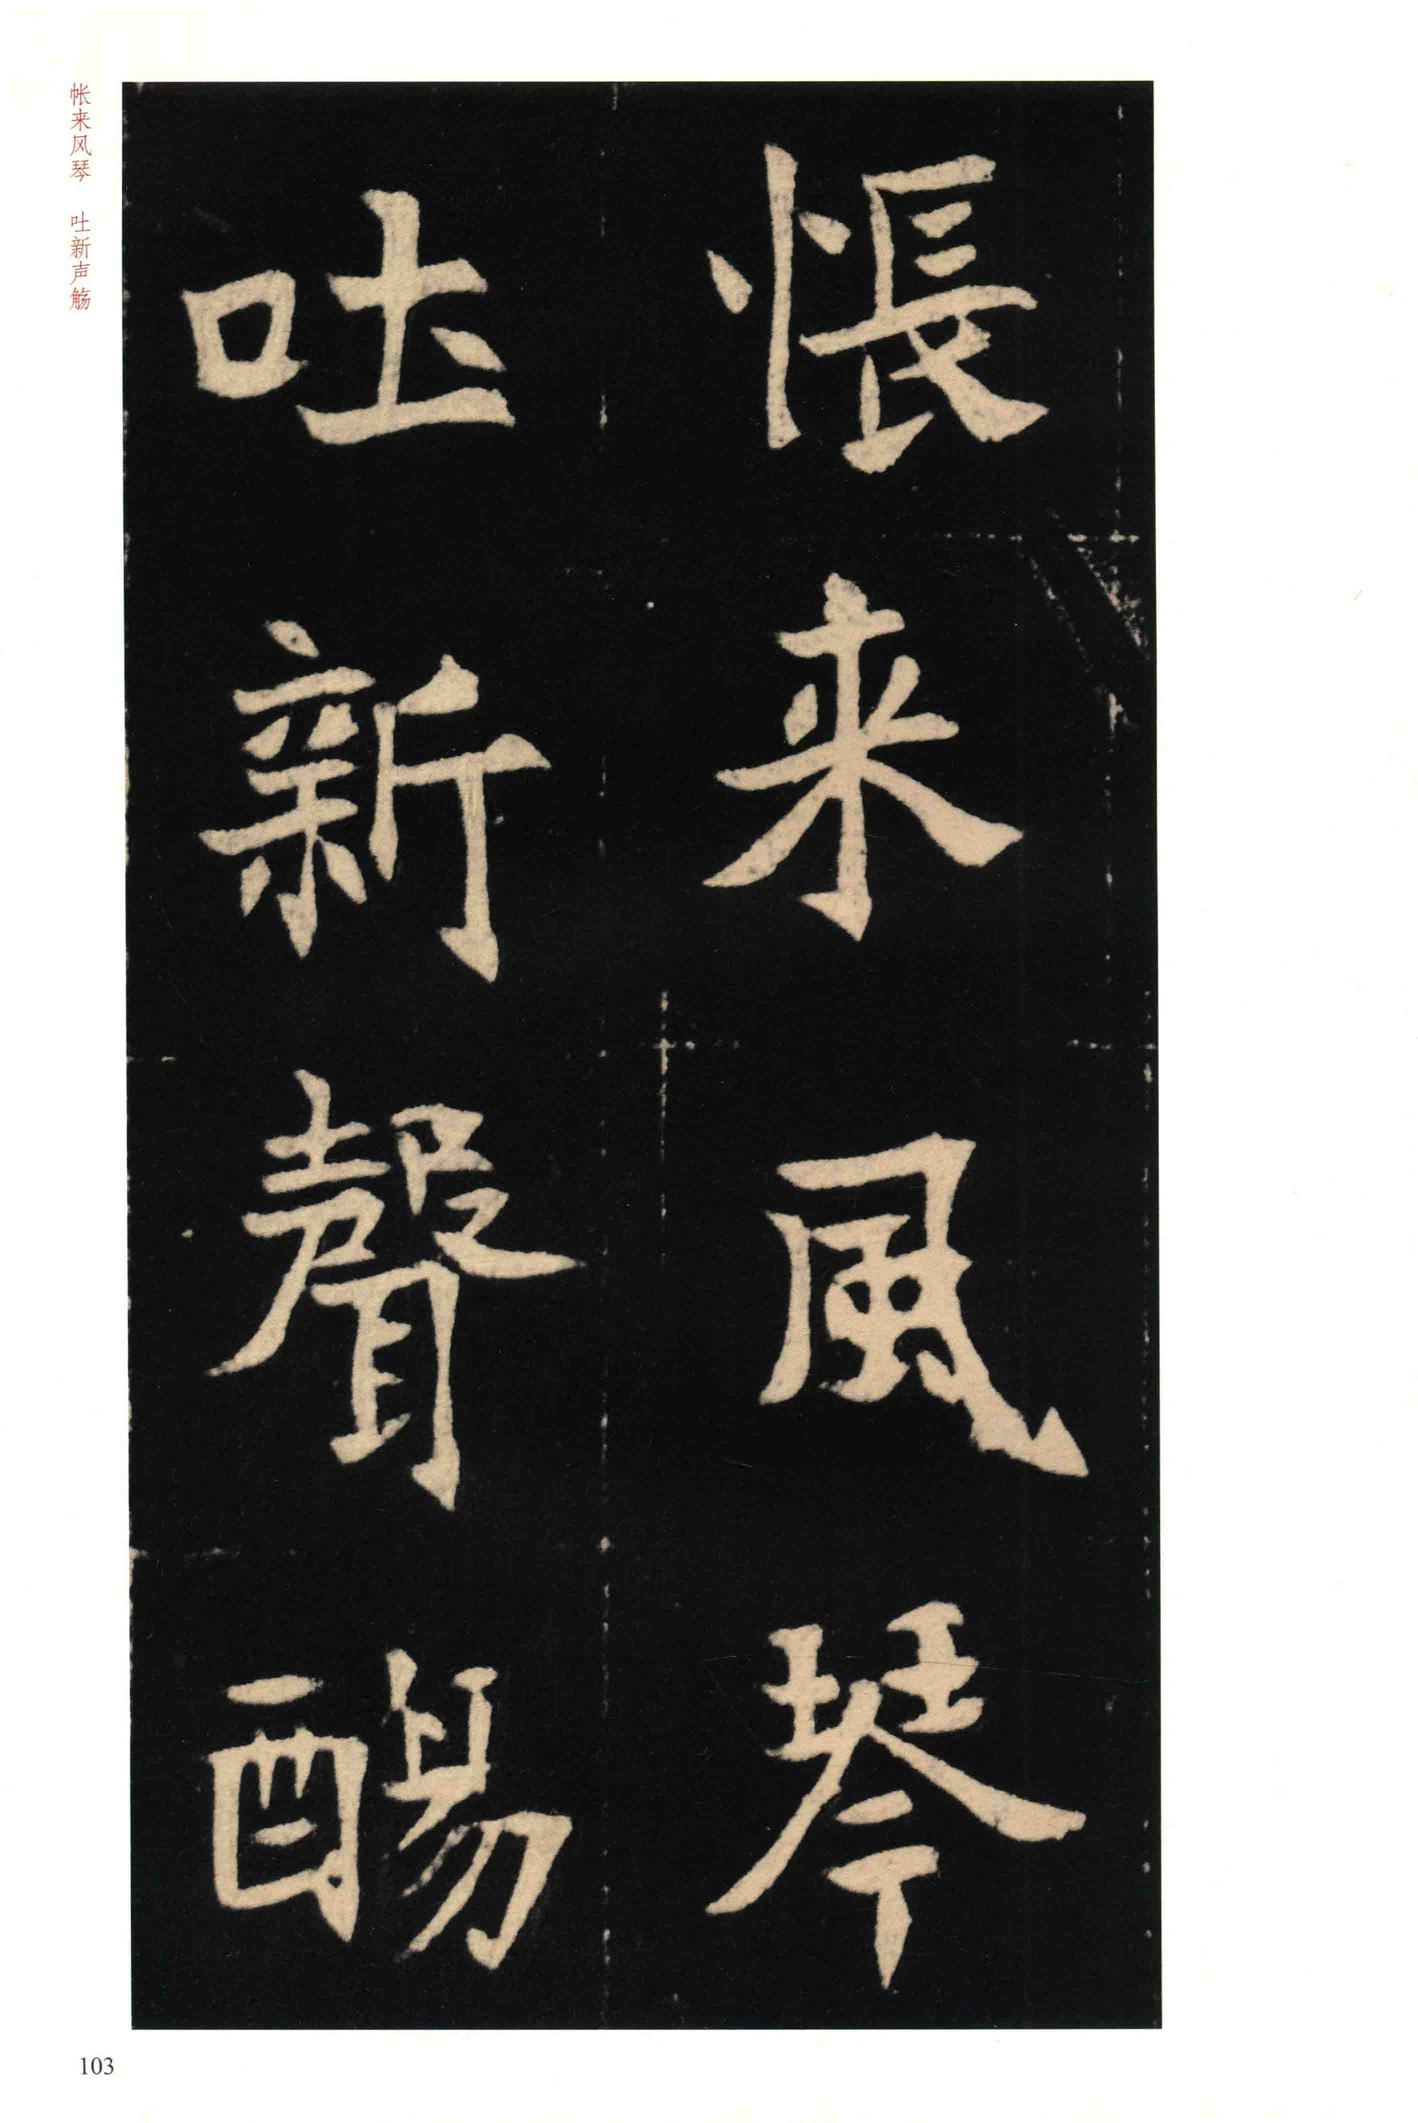 悵来風琴
吐新聲觴
帐来风琴 吐新声觞
103